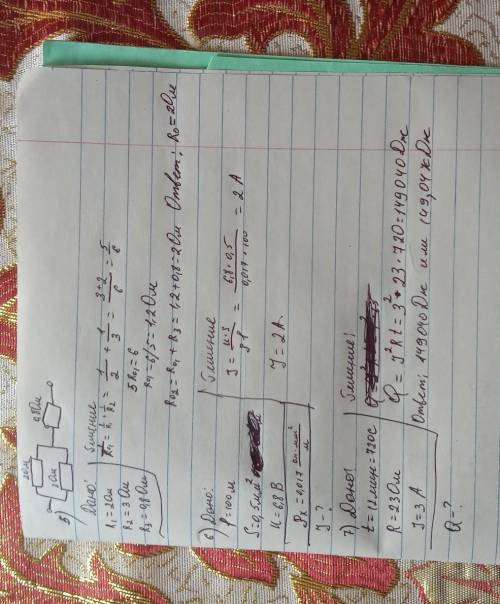 5) 2 Ом 3 Ом 0,8 Ом
Дано:
R₁=2 Ом
R₂=3 Ом
R₃=0,8 Ом
Решение
1/R₀₁ = 1/R₁ + 1/R₂ = 1/2 + 1/3 = (3+2)/6 = 5/6
5R₀₁=6
R₀₁=6/5=1,2 Ом
R₀₂=R₀₁+R₃=1,2+0,8=2 Ом Ответ: R₀=2 Ом
6) Дано:
l=100 м
S=0,5 мм²
U=6,8 В
ρ=0,017 Ом·мм²/м
I-?
Решение
I = U·S/ρl = 6,8·0,5/0,017·100 = 2 А
I=2 А.
7) Дано:
t=12 мин=720 с
R=23 Ом
I=3 А
Q-?
Решение:
Q=I²Rt=3²·23·720=149040 Дж
Ответ: 149040 Дж или 149,04 кДж